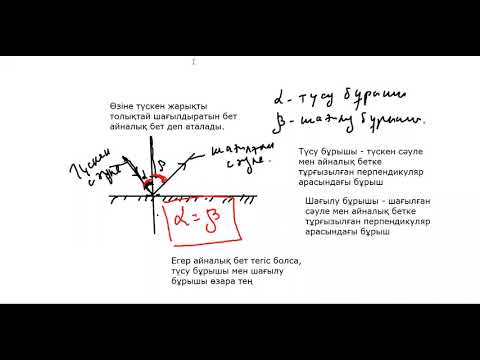 Өзіне түскен жарықты
толықтай шағылдыратын бет
айналық бет деп аталады.
α - түсу бұрышы
β - шағылу бұрышы.
Түскен
сәуле
α
β
шағылған
сәуле.
α = β
Түсу бұрышы - түскен сәуле
мен айналық бетке
тұрғызылған перпендикуляр
арасындағы бұрыш
Шағылу бұрышы - шағылған
сәуле мен айналық бетке
тұрғызылған перпендикуляр
арасындағы бұрыш
Егер айналық бет тегіс болса,
түсу бұрышы мен шағылу
бұрышы өзара тең